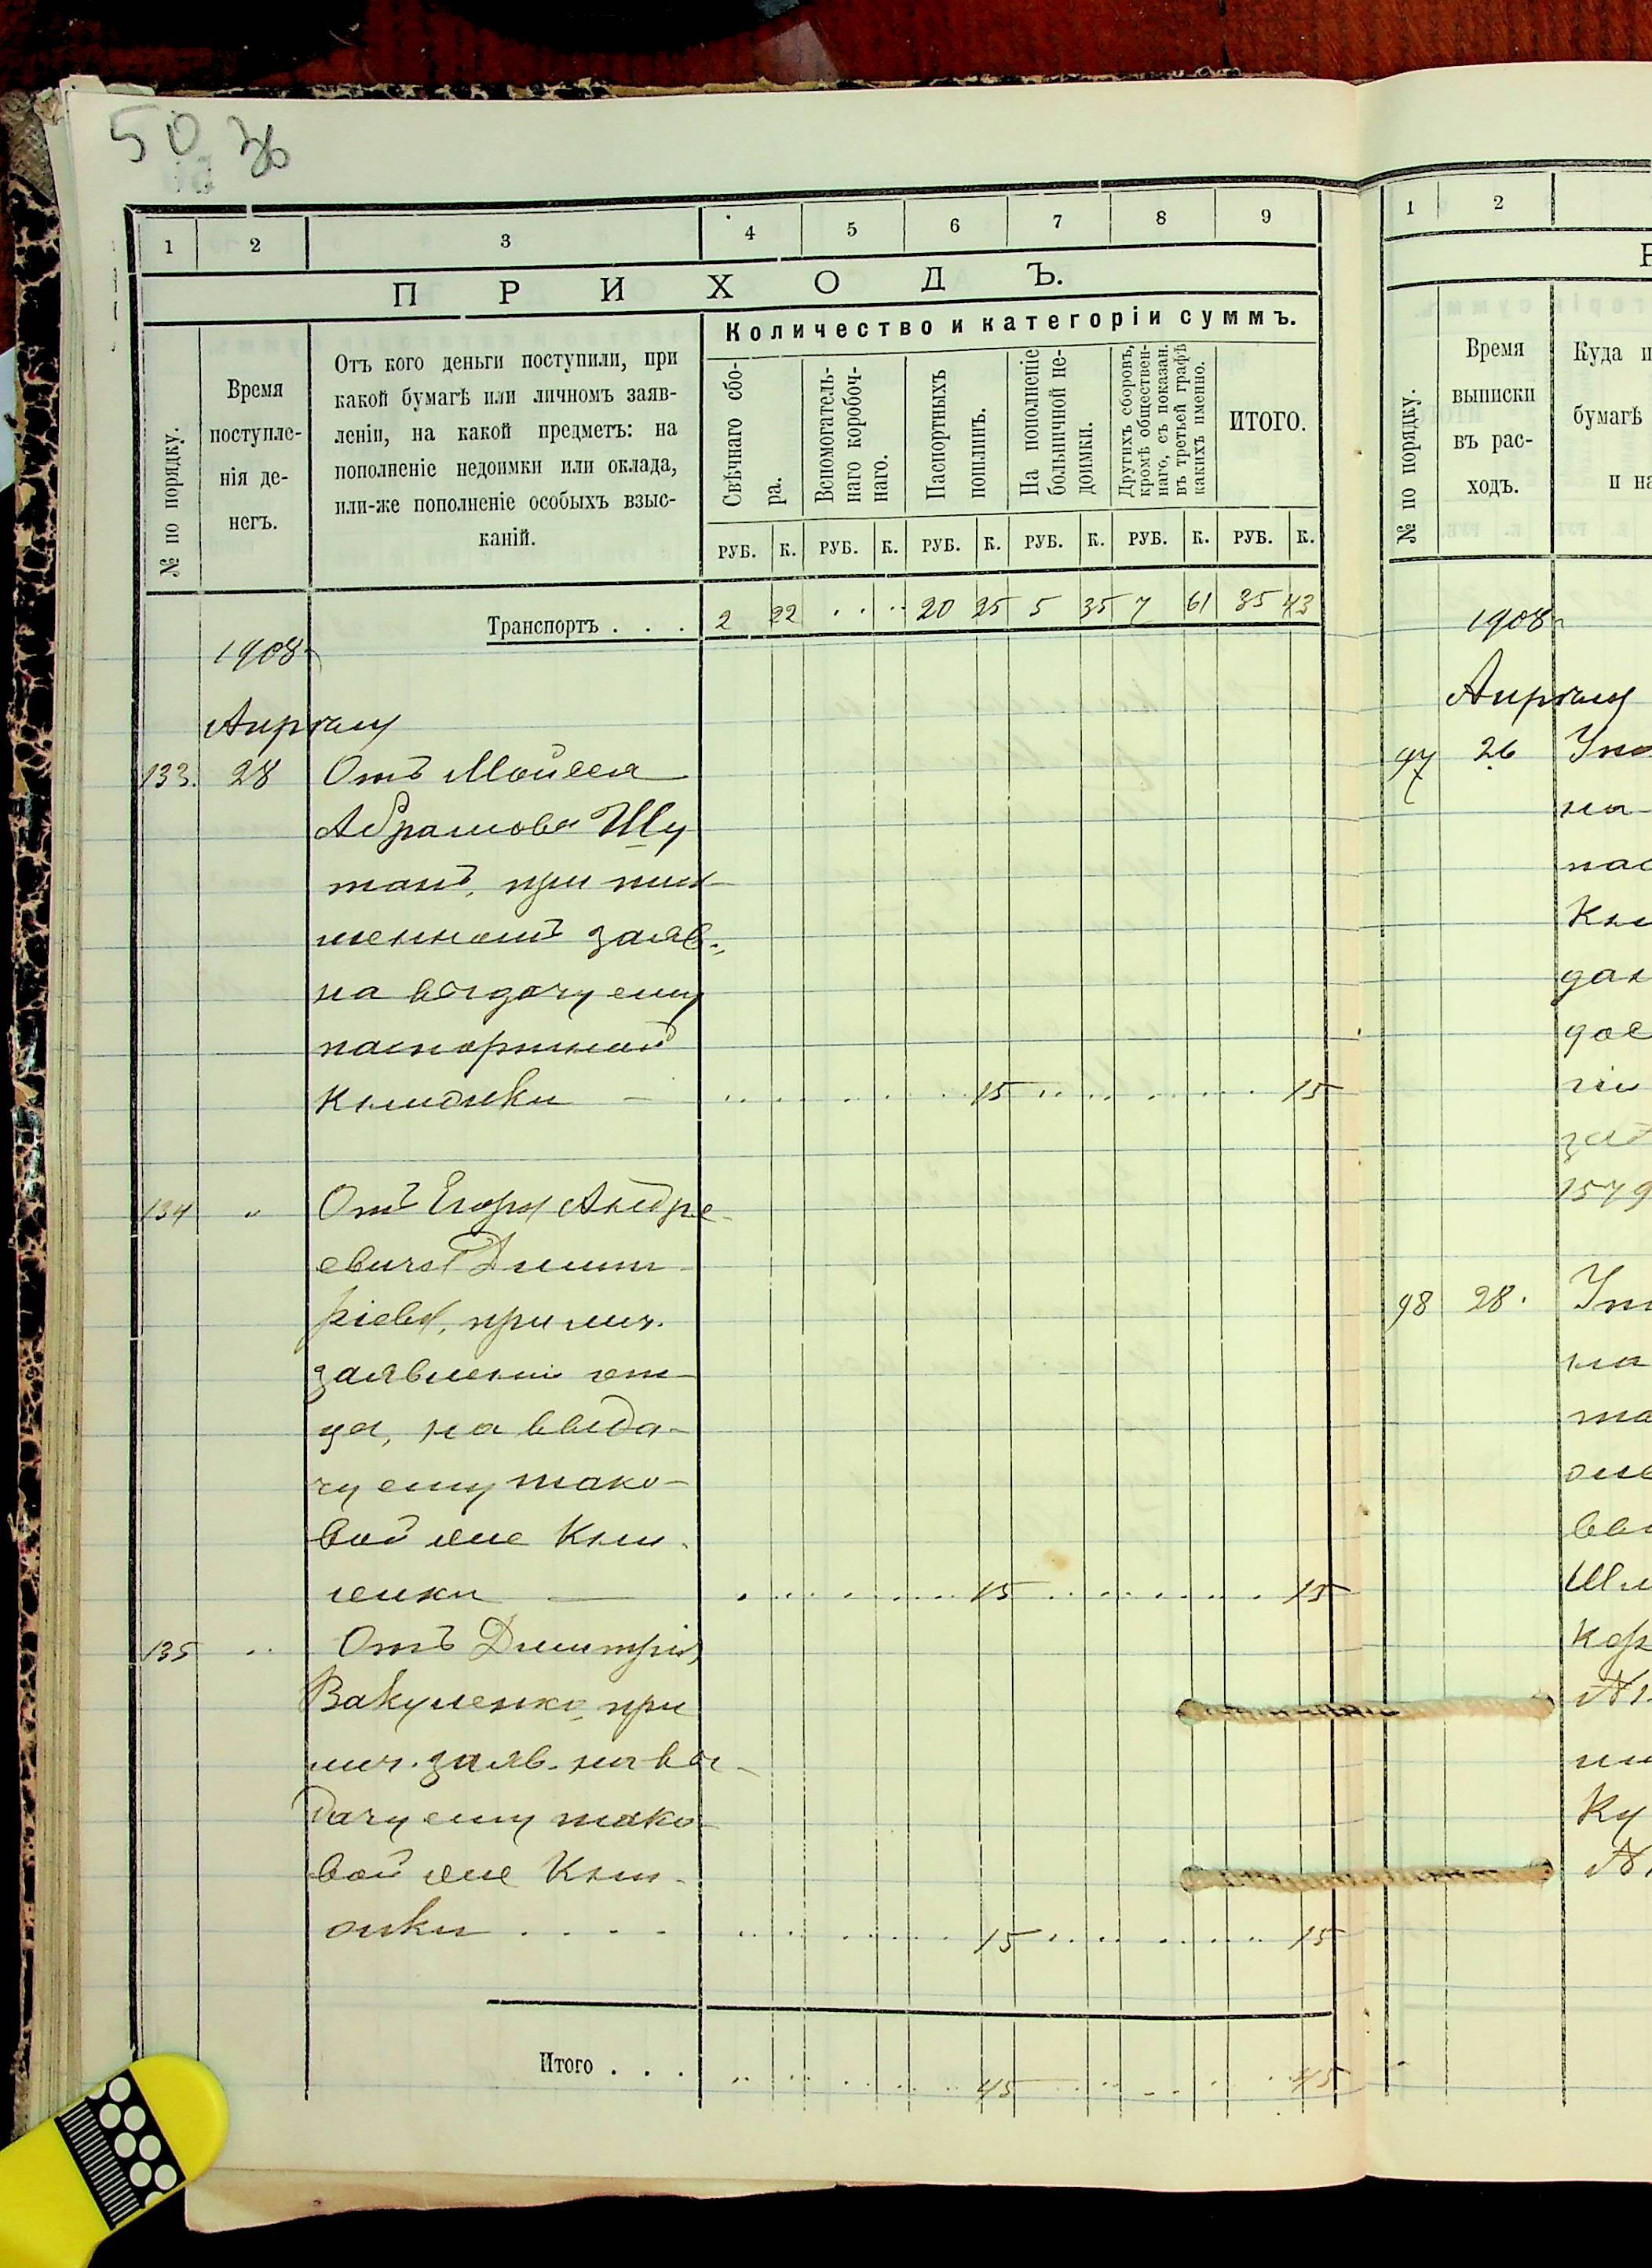 50 зв
1 2 3 4 5 6 7 8 9
ПРИХОДЪ.
№ по порядку.
Время
поступле-
нія де-
негъ.
Отъ кого деньги поступили, при
какой бумагѣ или личномъ заяв-
леніи, на какой предметъ: на
пополненіе недоимки или оклада,
или-же пополненіе особыхъ взыс-
каній.
Количество и категоріи суммъ.
Свѣчнаго сбо-
ра.
Вспомогатель-
наго коробоч-
наго.
Паспортныхъ
пошлинъ.
На пополненіе
больничной не-
доимки.
Другихъ сборовъ,
кромѣ обществен-
наго, съ показан.
въ третьей графѣ
какихъ именно.
ИТОГО.
РУБ. К. РУБ. К. РУБ. К. РУБ. К. РУБ. К. РУБ. К.
Транспортъ . . . 2 22 20 25 5 35 7 61 35 43
1908
Апрѣля
133. 28 Отъ Мойсея
Абрамова Шу
манъ, при пись
менномъ заяв.
на выдачу ему
паспортной
книжки — 15 15
134 " Отъ Егора Андре-
евича Димит-
ріева, при лич.
заявленіи от-
ца, на выда-
чу ему тако-
вой же кни-
жки — 15 15
135 " Отъ Димитрія
Вакуленко, при
лич. заяв. на вы-
дачу ему тако-
вой же кни-
жки . . . . 15 15
Итого . . . 45 45
1 2
№ по порядку.
Время
выписки
въ рас-
ходъ.
Куда
бумагѣ
и на
1908
Апрѣля
97 26
на-
пас
Кни
дан
1579
98 28.
на
та
вы
Ку